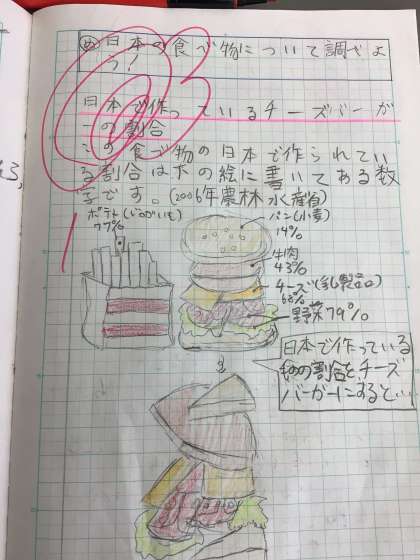 め 日本の食べ物について調べよ
う!
日本で作っているチーズバーガー
の割合
この食べ物の日本で作られてい
る割合は下の絵に書いてある数
字です。(2006年農林水産省)
ポテト(じゃがいも)
77%
パン(小麦)
14%
牛肉
43%
チーズ(乳製品)
68%
野菜79%
日本で作っている
物の割合をチーズ
バーガーにすると…